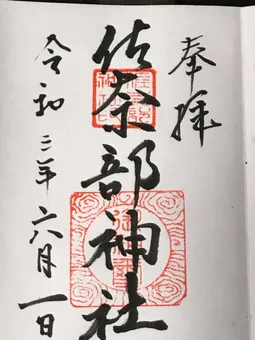 奉拝
佐奈部神社
令和三年六八月一日